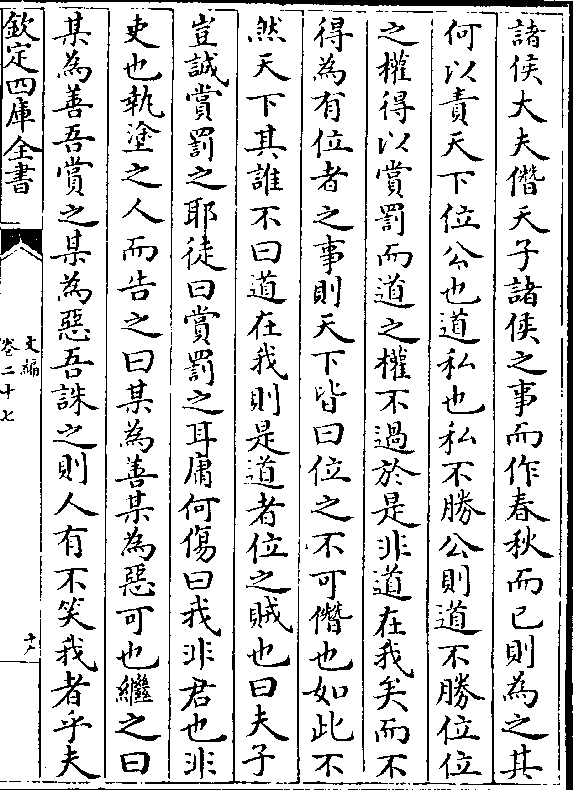 諸侯大夫僭天子諸侯之事而作春秋而已則為之其
何以責天下位公也道私也私不勝公則道不勝位位
之權得以賞罰而道之權不過於是非道在我矣而不
得為有位者之事則天下皆曰位之不可僭也如此不
然天下其誰不曰道在我則是道者位之賊也曰夫子
豈誠賞罰之耶徒曰賞罰之耳庸何傷曰我非君也非
吏也執塗之人而告之曰某為善某為惡可也繼之曰
某為善吾賞之某為惡吾誅之則人有不笑我者乎夫
欽定四庫全書
文編
卷二十七